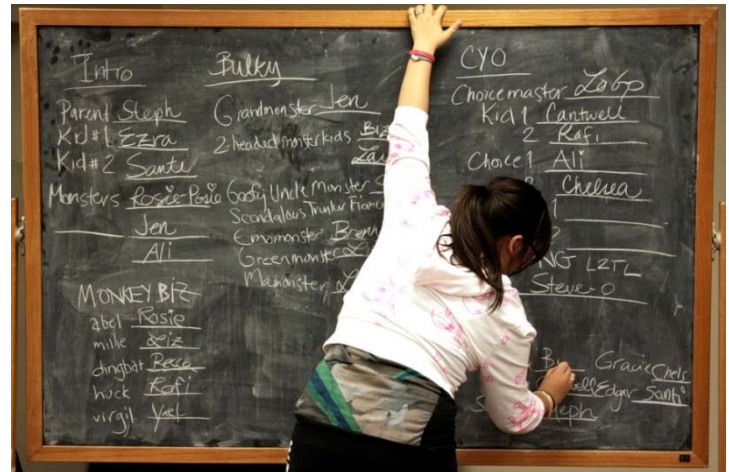 Intro
Parent Steph
Kid #1 Ezra
Kid #2 Santi
Monsters Rosie Posie
Jen
Ali
MONKEY BIZ
abel Rosie
millie Liz
dingbat Becca
huck Rafi
virgil Yael
Bulky
Grandmonster Jen
2-headed monster kids
Goofy Uncle Monster
Scandalous
Emomonster
Greenmonster
CYO
Choicemaster
Kid 1 Cantwell
2 Rafi
Choice 1 Ali
Chelsea
L2TL
Steve-O
Gracie Chels
Edgar Santi